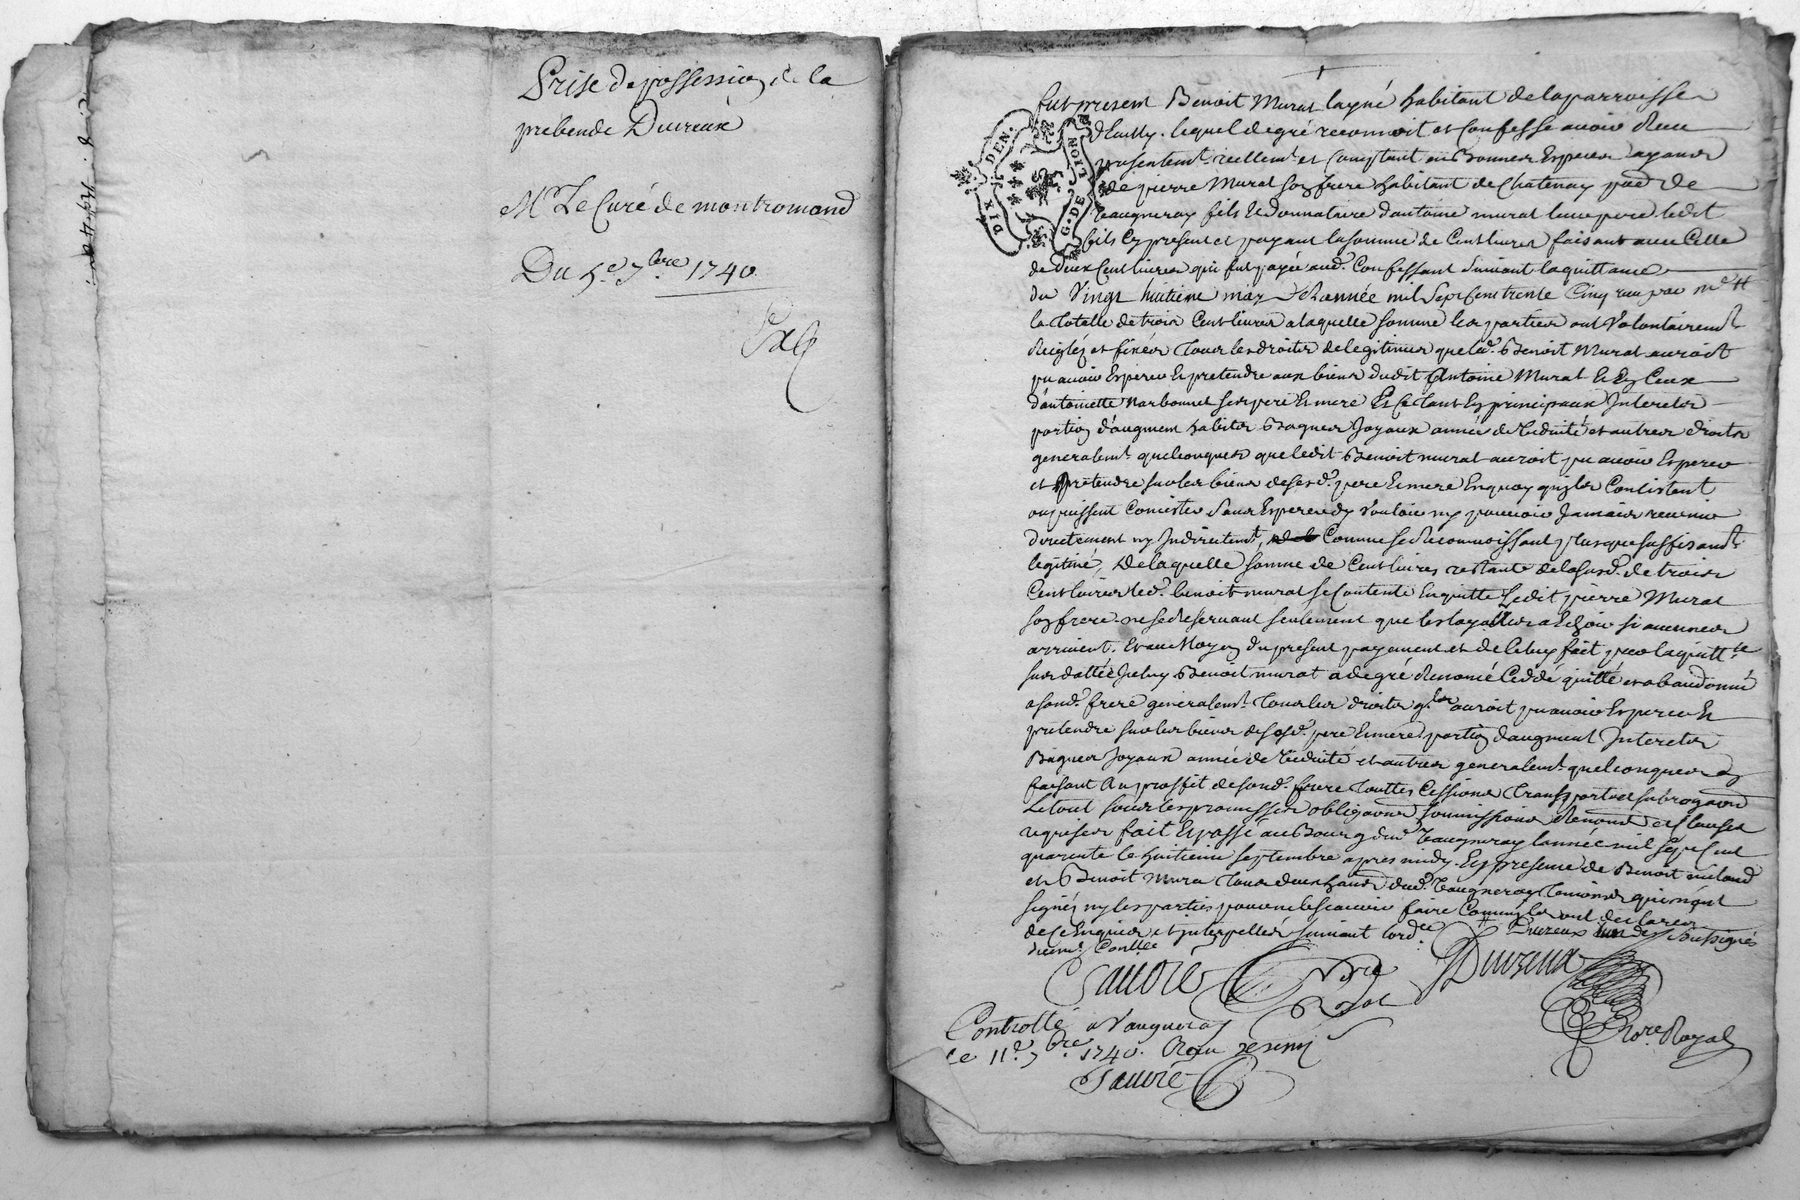 Prise de possession de la
prebende Duvreux
Mr Le Curé de montromand
Du 5e 7bre 1740
DIX DEN.
G. DE LION
fut present Benoit Murat layné habitant de la parroisse
lequel de gré reconnoit et Confesse avoir Receu
presentemt. reellemt. et Comptant
de pierre Murat son frere habitant de Chatenay par de
Vaugneray fils & Donnataire dantoine murat leur pere ledit
fils Cy present et payant la somme de Cent livres faisant avec Celle
de deux Cent livres qui fut payée aud. Confessant suivant la quittance
du Vingt huitieme may de Lannée mil Sept Cent trente Cinq receu par me
la totalle de trois Cent livres a laquelle somme les parties ont Volontairemt.
Reiglés et fixées tous les droits de legitimes que led. Benoit Murat auroit
pu avoir Esperer & pretendre aux biens dudit Antoine Murat & En Ceux
d'antoinette Narbonnet ses pere & mere Et Ce tant En principaux Interets
portion d'augment habits Bagues Joyaux année de Viduité et autres droits
generalemt. quelconques que ledit Benoit murat auroit pu avoir Esperer
et pretendre sur les biens de sesd. pere & mere En quoy qu'ils Consistent
ou puissent Concister Sans Esperer dy Vouloir ny pouvoir Jamais revenir
directement ny Indirectemt, Comme se Reconnoissant plus que suffisamt.
legitimé, De laquelle somme de Cent livres restante de la susd. de trois
Cent livres led. benoit murat se Contente En quitte Ledit pierre Murat
son frere ne se Reservant seulement que les loyalles Echoir si aucunes
arrivent. Et au Moyen du present payement et de Celuy fait par la quittce
sus dattée Iceluy Benoit murat a de gré Renoncé Ceddé quitté et abandonné
a sond. frere generalemt. tous les droits qu'il auroit pu avoir Esperer &
pretendre sur les biens de sesd. pere & mere portion d'augment Interets
Bagues Joyaux année de Viduité et autres generalemt. quelconques
faisant Au proffit de sond. frere touttes Cessions transports et subrogaons
Le tout sous les promesses obligaons soumissions Renonns et Clauses
requises fait & passé au Bourg dud. Vaugneray lannée mil sept Cent
quarente le huitieme septembre apres midy. En presence de Benoit
et Benoit Mure tous deux habts. dud. Vaugneray temoins qui n'ont
signés ny les parties pour ne le scavoir faire Comm'ils ont declarés
de Ce Enquis et interpellés suivant lordce Duvreux lun des soussignés
Sauvré Nre
Royal
Duvreux
Nore. Royal
Controllé a Vaugneray
Le 11e. 7bre. 1740. Receu
Sauvré